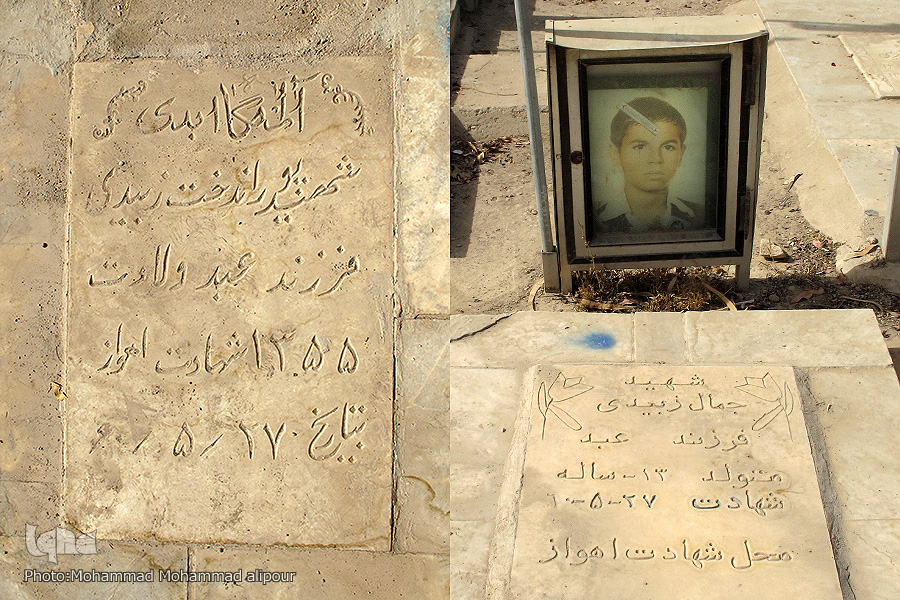 آرامگاه ابدی
شهید پوراندخت زبیدی
فرزند عبد ولادت
۱۳۵۵ شهادت اهواز
بتاریخ ۲۷/۵/۶۰
شهید
جمال زبیدی
فرزند عبد
متولد ۱۳-ساله
شهادت ۲۷-۵-۶۰
محل شهادت اهواز
iqna
Photo:Mohammad Mohammad alipour